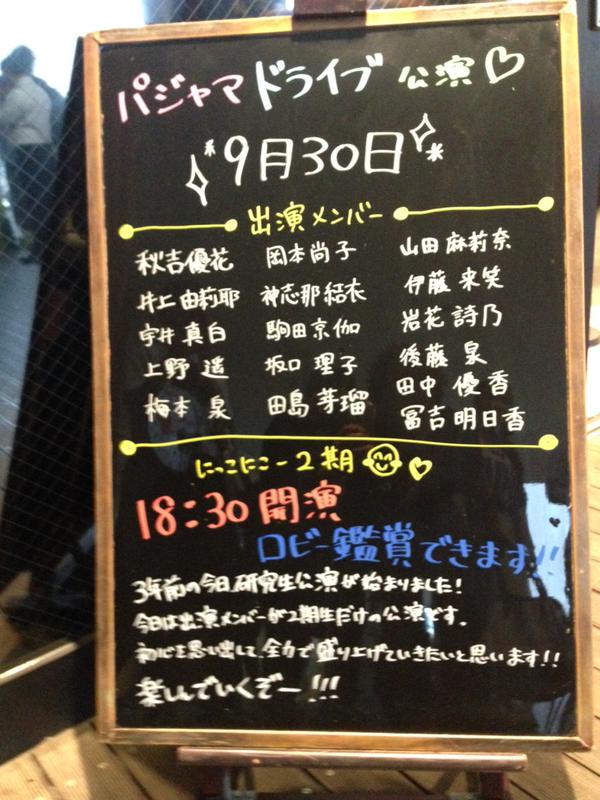 パジャマドライブ 公演♡
9月30日
出演メンバー
秋吉優花 岡本尚子 山田麻莉奈
井上由莉耶 神志那結衣 伊藤来笑
宇井真白 駒田京伽 岩花詩乃
上野遥 坂口理子 後藤泉
梅本泉 田島芽瑠 田中優香
冨吉明日香
にっこにこー2期♡
18:30開演
ロビー鑑賞できます!!
3年前の今日、研究生公演が始まりました!
今日は出演メンバーが2期生だけの公演です。
初心を思い出して、全力で盛り上げていきたいと思います!!
楽しんでいくぞー!!!